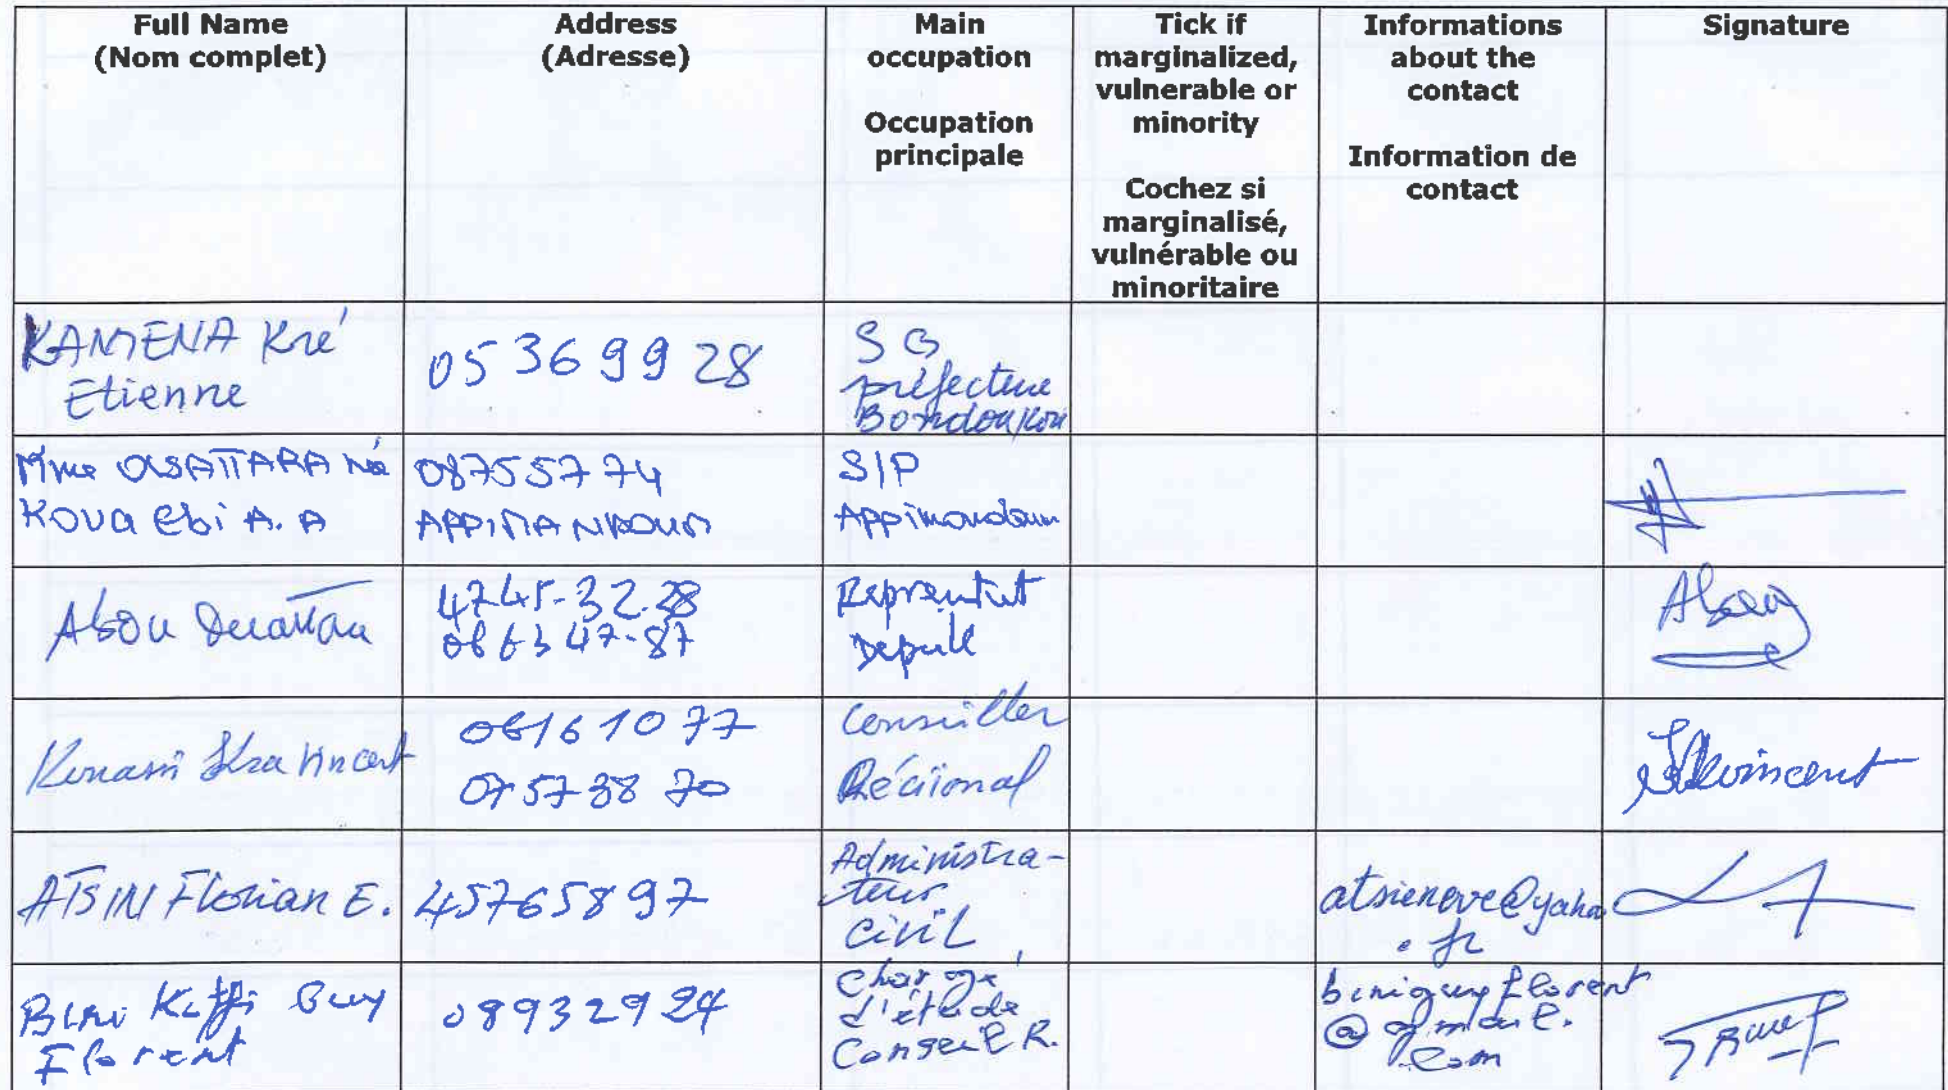 Full Name
(Nom complet)
Address
(Adresse)
Main
occupation
Occupation
principale
Tick if
marginalized,
vulnerable or
minority
Cochez si
marginalisé,
vulnérable ou
minoritaire
Informations
about the
contact
Information de
contact
Signature
KAMENA Kré
Etienne
05 36 99 28
SG
préfecture
Bondoukou
Mme OUATTARA Née
KOUA Ebi A. A
08755774
APPIMANDOUM
S/P
Appimandoum
Abou Ouattara
4745-32.28
47-87
Député
Vincent
0616 10 77
07 57 38 70
Conseiller
Régional
ATSIN Florian E.
45765897
Administra-
teur
Civil
atsienove@yahoo
.fr
Koffi Guy
Florent
08932924
Chargé
d'étude
Conseil R.
biniguyflorent
@gmail.
com